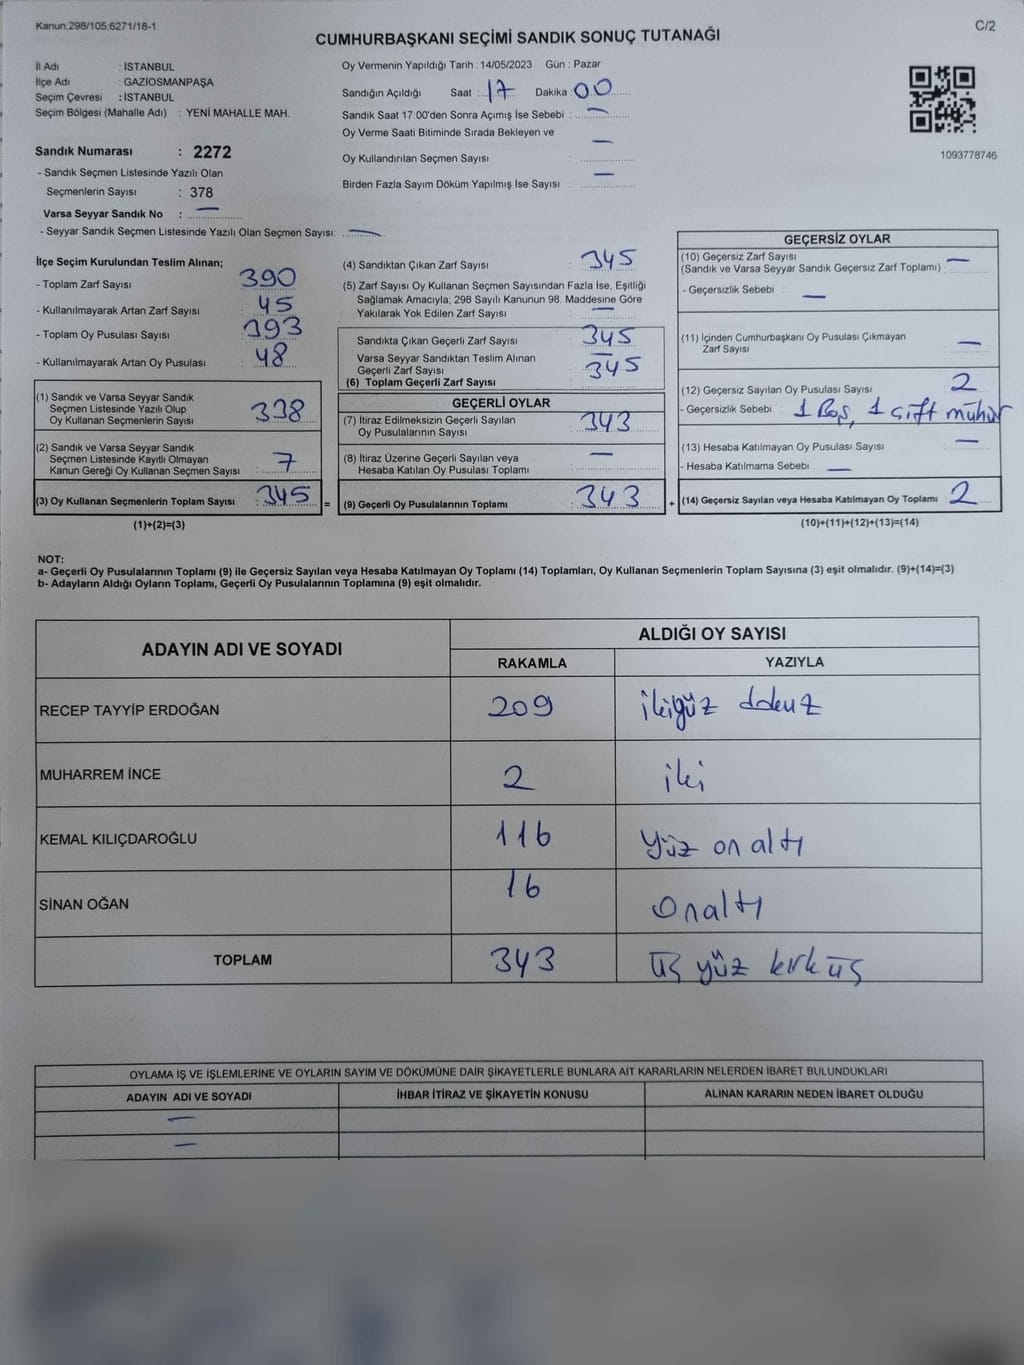 Kanun;298/105;6271/18-1
C/2
CUMHURBAŞKANI SEÇİMİ SANDIK SONUÇ TUTANAĞI
İl Adı : İSTANBUL
İlçe Adı : GAZİOSMANPAŞA
Seçim Çevresi : İSTANBUL
Seçim Bölgesi (Mahalle Adı) : YENİ MAHALLE MAH.
Sandık Numarası : 2272
- Sandık Seçmen Listesinde Yazılı Olan
Seçmenlerin Sayısı : 378
Varsa Seyyar Sandık No : —
- Seyyar Sandık Seçmen Listesinde Yazılı Olan Seçmen Sayısı: —
Oy Vermenin Yapıldığı Tarih : 14/05/2023 Gün : Pazar
Sandığın Açıldığı Saat : 17 Dakika : 00
Sandık Saat 17:00'den Sonra Açımış İse Sebebi : —
Oy Verme Saati Bitiminde Sırada Bekleyen ve
Oy Kullandırılan Seçmen Sayısı : —
Birden Fazla Sayım Döküm Yapılmış İse Sayısı : —
1093778746
İlçe Seçim Kurulundan Teslim Alınan;
- Toplam Zarf Sayısı : 390
- Kullanılmayarak Artan Zarf Sayısı : 45
- Toplam Oy Pusulası Sayısı : 393
- Kullanılmayarak Artan Oy Pusulası : 48
(1) Sandık ve Varsa Seyyar Sandık
Seçmen Listesinde Yazılı Olup
Oy Kullanan Seçmenlerin Sayısı : 338
(2) Sandık ve Varsa Seyyar Sandık
Seçmen Listesinde Kayıtlı Olmayan
Kanun Gereği Oy Kullanan Seçmen Sayısı : 7
(3) Oy Kullanan Seçmenlerin Toplam Sayısı : 345
(1)+(2)=(3)
(4) Sandıktan Çıkan Zarf Sayısı : 345
(5) Zarf Sayısı Oy Kullanan Seçmen Sayısından Fazla İse, Eşitliği
Sağlamak Amacıyla, 298 Sayılı Kanunun 98. Maddesine Göre
Yakılarak Yok Edilen Zarf Sayısı : —
Sandıkta Çıkan Geçerli Zarf Sayısı : 345
Varsa Seyyar Sandıktan Teslim Alınan
Geçerli Zarf Sayısı : —
(6) Toplam Geçerli Zarf Sayısı 345
GEÇERLİ OYLAR
(7) İtiraz Edilmeksizin Geçerli Sayılan
Oy Pusulalarının Sayısı : 343
(8) İtiraz Üzerine Geçerli Sayılan veya
Hesaba Katılan Oy Pusulası Toplamı : —
= (9) Geçerli Oy Pusulalarının Toplamı : 343
GEÇERSİZ OYLAR
(10) Geçersiz Zarf Sayısı
(Sandık ve Varsa Seyyar Sandık Geçersiz Zarf Toplamı) : —
- Geçersizlik Sebebi : —
(11) İçinden Cumhurbaşkanı Oy Pusulası Çıkmayan
Zarf Sayısı : —
(12) Geçersiz Sayılan Oy Pusulası Sayısı : 2
- Geçersizlik Sebebi : 1 Boş, 1 çift mühür
(13) Hesaba Katılmayan Oy Pusulası Sayısı : —
- Hesaba Katılmama Sebebi : —
+ (14) Geçersiz Sayılan veya Hesaba Katılmayan Oy Toplamı : 2
(10)+(11)+(12)+(13)=(14)
NOT:
a- Geçerli Oy Pusulalarının Toplamı (9) ile Geçersiz Sayılan veya Hesaba Katılmayan Oy Toplamı (14) Toplamları, Oy Kullanan Seçmenlerin Toplam Sayısına (3) eşit olmalıdır. (9)+(14)=(3)
b- Adayların Aldığı Oyların Toplamı, Geçerli Oy Pusulalarının Toplamına (9) eşit olmalıdır.
ADAYIN ADI VE SOYADI
ALDIĞI OY SAYISI
RAKAMLA YAZIYLA
RECEP TAYYİP ERDOĞAN 209 ikiyüz dokuz
MUHARREM İNCE 2 iki
KEMAL KILIÇDAROĞLU 116 Yüz on altı
SİNAN OĞAN 16 Onaltı
TOPLAM 343 üç yüz kırk üç
OYLAMA İŞ VE İŞLEMLERİNE VE OYLARIN SAYIM VE DÖKÜMÜNE DAİR ŞİKAYETLERLE BUNLARA AİT KARARLARIN NELERDEN İBARET BULUNDUKLARI
ADAYIN ADI VE SOYADI İHBAR İTİRAZ VE ŞİKAYETİN KONUSU ALINAN KARARIN NEDEN İBARET OLDUĞU
—
—